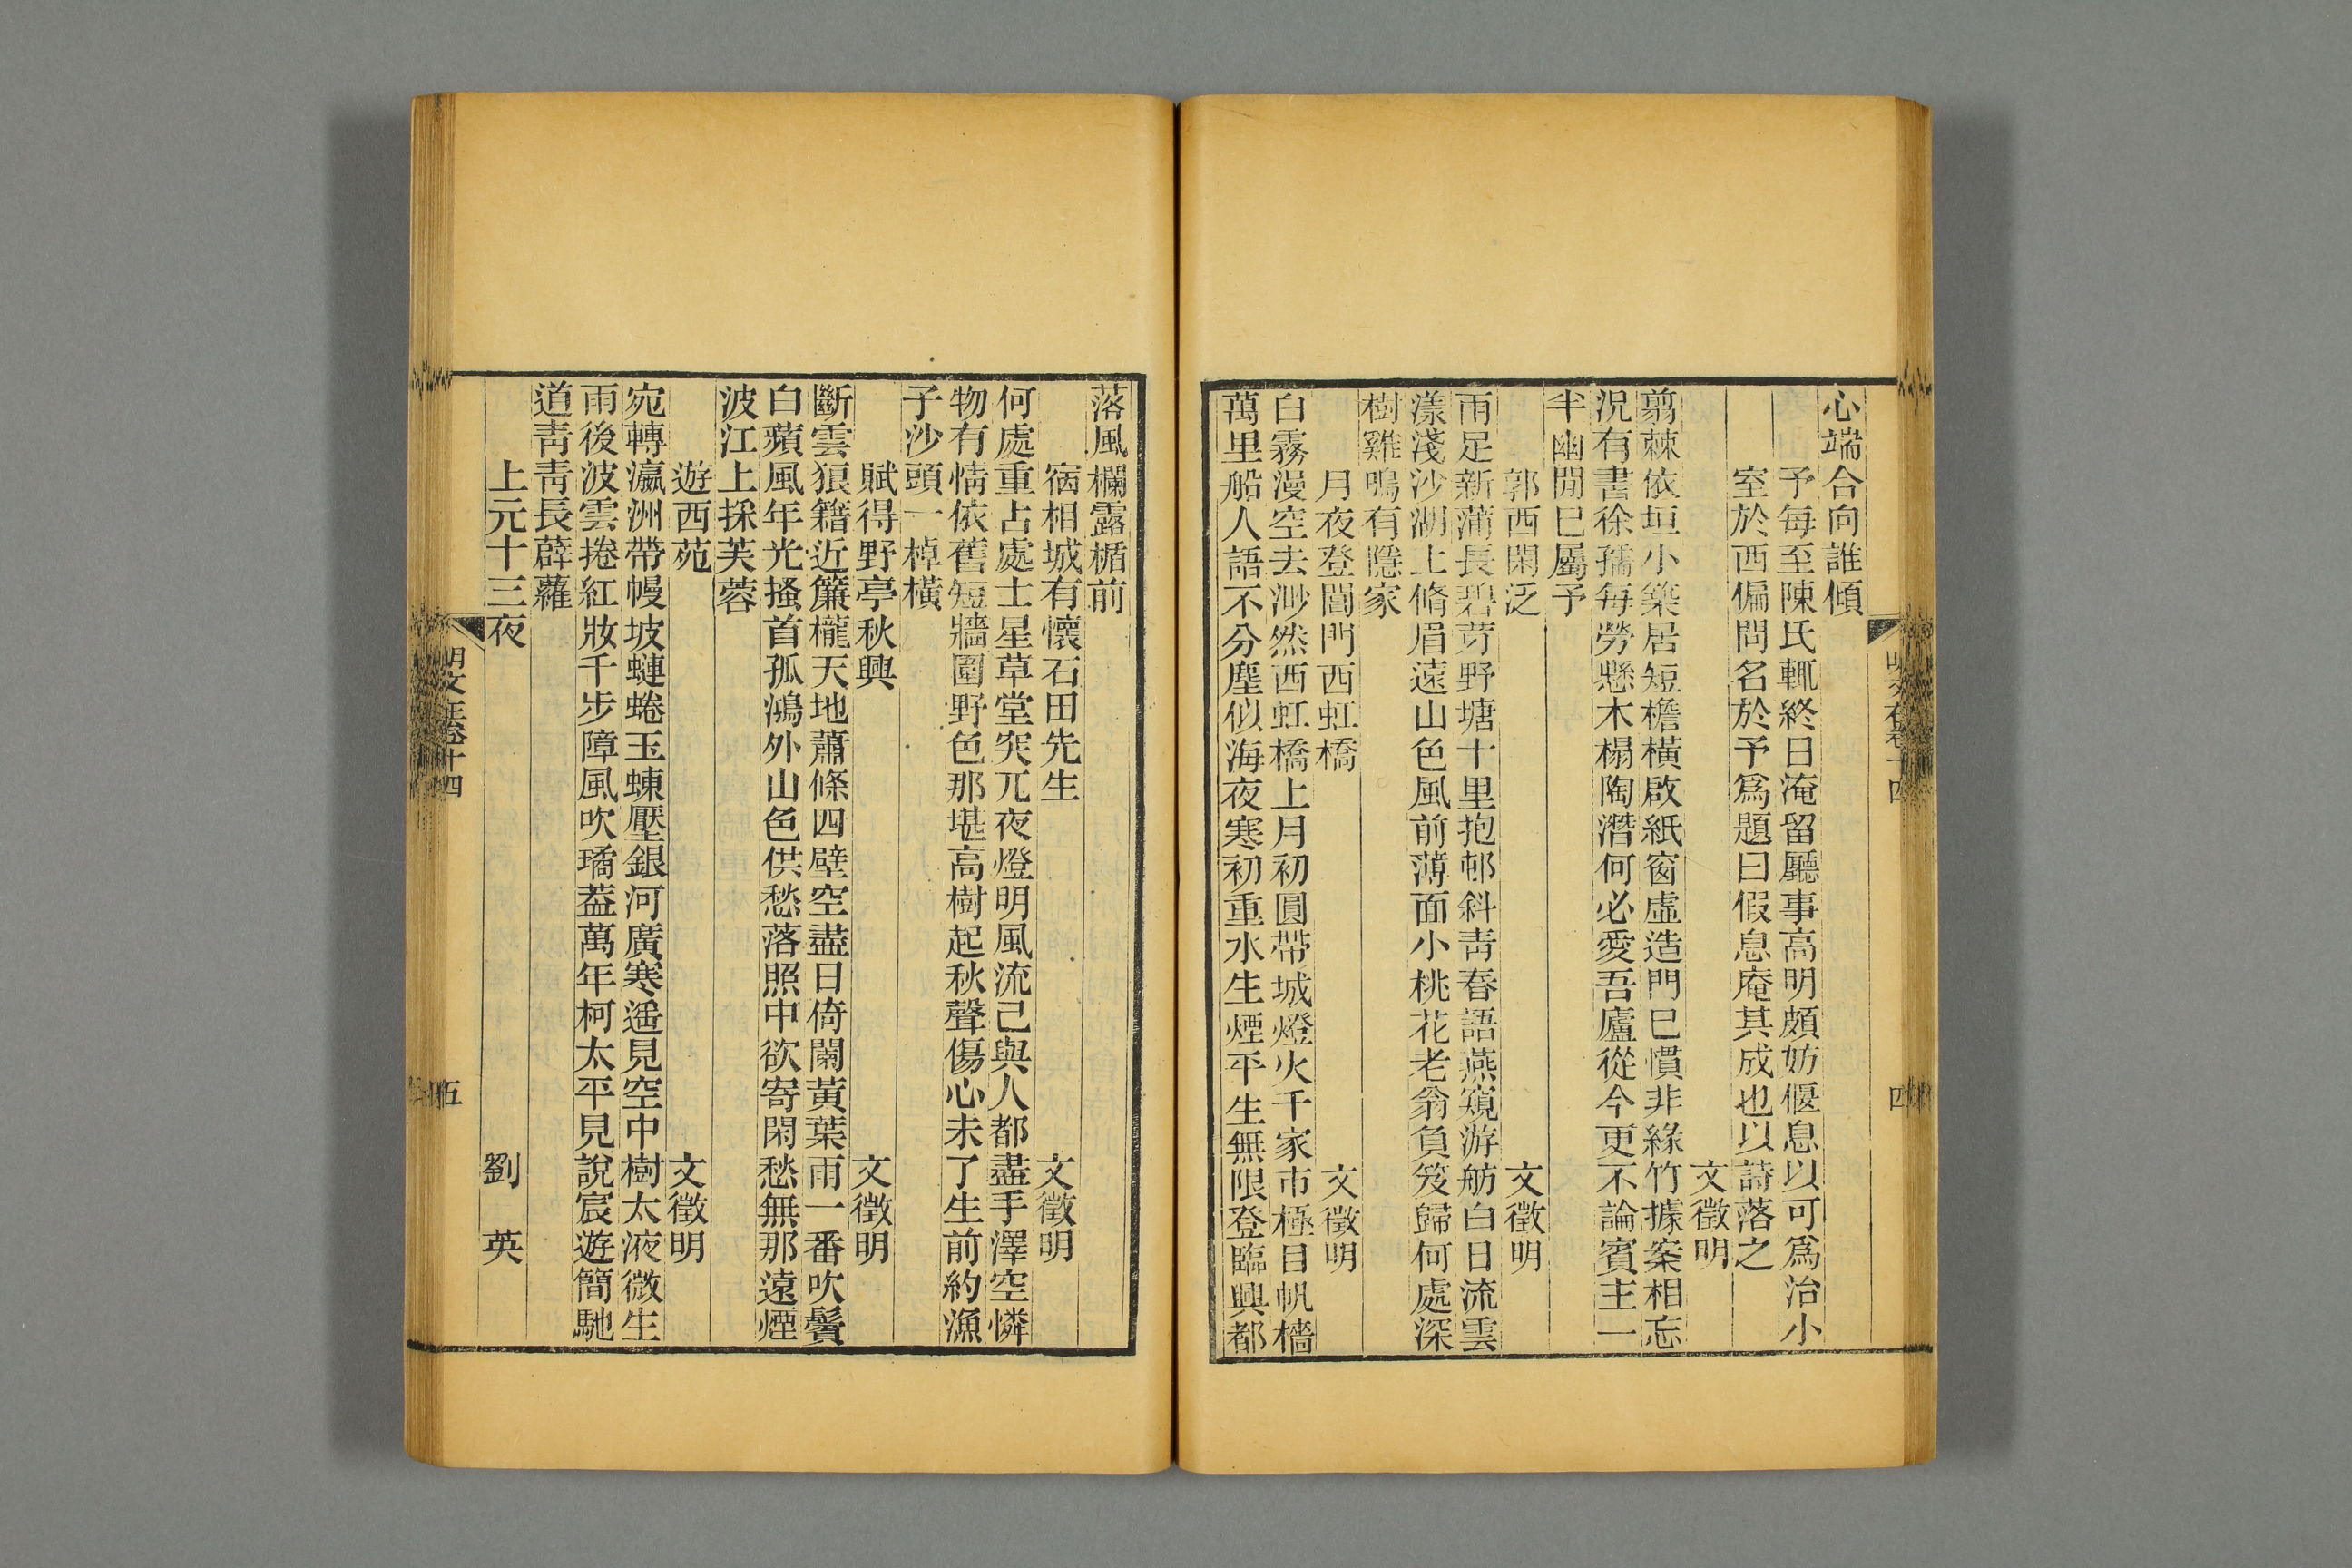 心端合向誰傾
予每至陳氏輒終日淹留廳事高明頗妨偃息以可爲治小
室於西偏問名於予爲題曰假息庵其成也以詩落之
文徵明
翦棘依垣小築居短檐橫啟紙窗虛造門已慣非緣竹據案相忘
況有書徐孺每勞懸木榻陶潛何必愛吾廬從今更不論賓主一
半幽閒已屬予
郭西閑泛 文徵明
雨足新蒲長碧芽野塘十里抱邨斜青春語燕窺游舫白日流雲
漾淺沙湖上脩眉遠山色風前薄面小桃花老翁負笈歸何處深
樹雞鳴有隱家
月夜登閶門西虹橋 文徵明
白霧漫空去渺然西虹橋上月初圓帶城燈火千家市極目帆檣
萬里船人語不分塵似海夜寒初重水生煙平生無限登臨興都
落風欄露楯前
宿相城有懷石田先生 文徵明
何處重占處士星草堂突兀夜燈明風流已與人都盡手澤空憐
物有情依舊短牆圍野色那堪高樹起秋聲傷心未了生前約漁
子沙頭一棹橫
賦得野亭秋興 文徵明
斷雲狼籍近簾櫳天地蕭條四壁空盡日倚闌黃葉雨一番吹鬢
白蘋風年光搔首孤鴻外山色供愁落照中欲寄閑愁無那遠煙
波江上採芙蓉
遊西苑 文徵明
宛轉瀛洲帶幔坡蜿蜷玉蝀壓銀河廣寒遥見空中樹太液微生
雨後波雲捲紅妝千步障風吹璚葢萬年柯太平見說宸遊簡馳
道青青長薜蘿
上元十三夜 劉英
卷十四
五